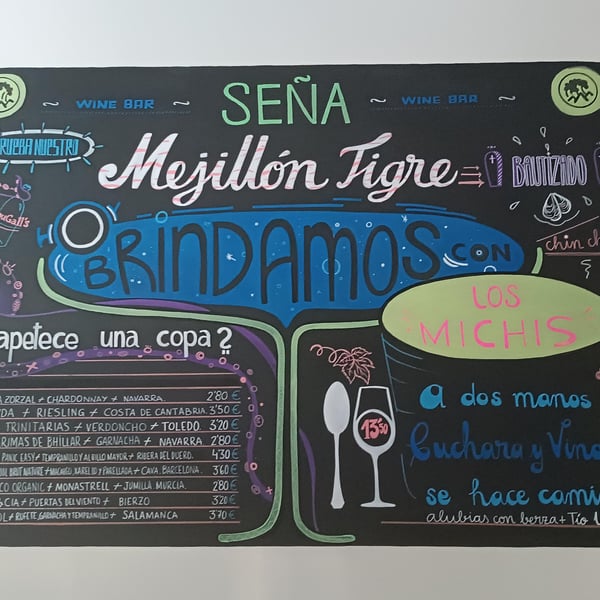 WINE BAR
SEÑA
WINE BAR
PRUEBA NUESTRO
Mejillón Tigre
BAUTIZADO
chin ch
BRINDAMOS CON
LOS
"MICHIS"
apetece una copa?
ZORZAL + CHARDONNAY + NAVARRA 2'80€
DA + RIESLING + COSTA DE CANTABRIA. 3'50€
TRINITARIAS + VERDONCHO + TOLEDO. 3'20€
RIMAS DE BHILLAR + GARNACHA + NAVARRA 2'80€
PANIC EASY + TEMPRANILLO Y ALBILLO MAYOR + RIBERA DEL DUERO. 4'30€
BRUT NATURE + MACABEU, XAREL·LO Y PARELLADA + CAVA. BARCELONA. 3'60€
CO ORGANIC + MONASTRELL + JUMILLA MURCIA. 2'80€
CIA + PUERTAS DEL VIENTO + BIERZO 3'20€
OL + RUFETE, GARNACHA Y TEMPRANILLO + SALAMANCA 3'70€
13'50
A dos manos
Cuchara y Vino
se hace cami
alubias con berza + Tío